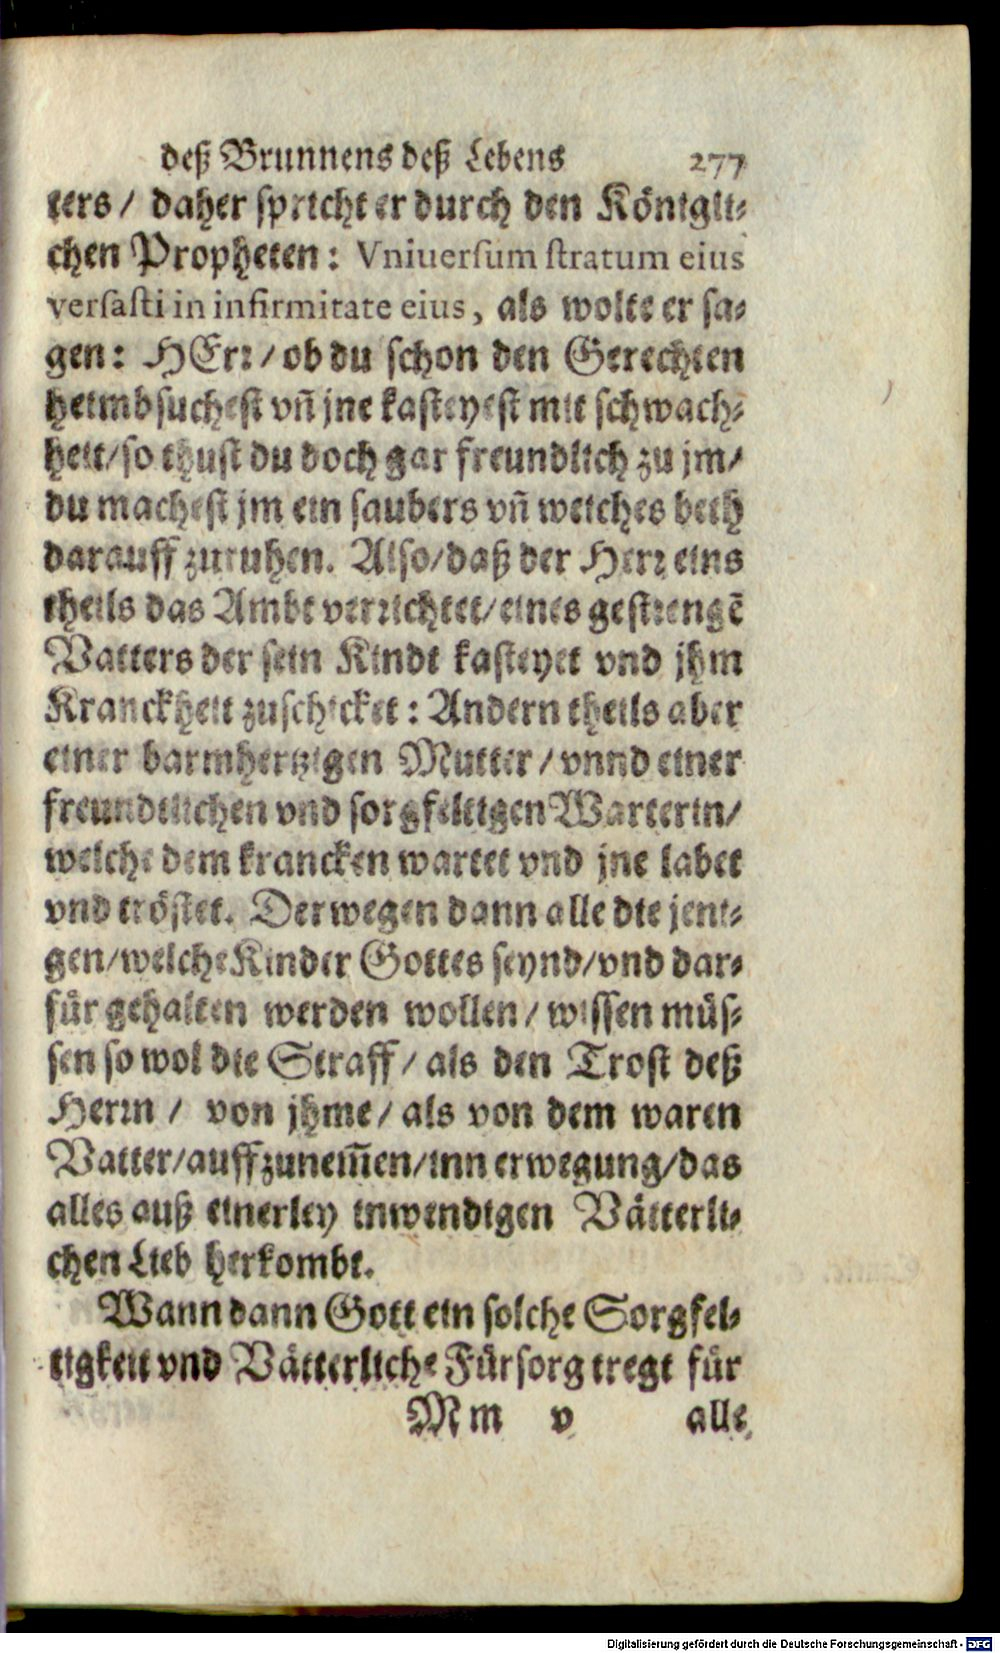 deß Brunnens deß Lebens 277
ters / daher spricht er durch den Königli-
chen Propheten: Vniuersum stratum eius
versasti in infirmitate eius, als wolte er sa-
gen: HErr / ob du schon den Gerechten
heimbsuchest vñ jne kasteyest mit schwach-
heit / so thust du doch gar freundlich zu jm /
du machest jm ein saubers vñ weiches beth
darauff zuruhen. Also / daß der Herr eins
theils das Ambt verrichtet / eines gestrengē
Vatters der sein Kindt kasteyet vnd jhm
Kranckheit zuschicket: Andern theils aber
einer barmhertzigen Mutter / vnnd einer
freundtlichen vnd sorgfeltigen Warterin /
welche dem krancken wartet vnd jne labet
vnd tröstet. Derwegen dann alle die jeni-
gen / welche Kinder Gottes seynd / vnd dar-
für gehalten werden wollen / wissen müs-
sen so wol die Straff / als den Trost deß
Herrn / von jhme / als von dem waren
Vatter / auffzunem̃en / inn erwegung / das
alles auß einerley inwendigen Vätterli-
chen Lieb herkombt.
Wann dann Gott ein solche Sorgfel-
tigkeit vnd Vätterliche Fürsorg tregt für
Mm v alle
Digitalisierung gefördert durch die Deutsche Forschungsgemeinschaft - DFG